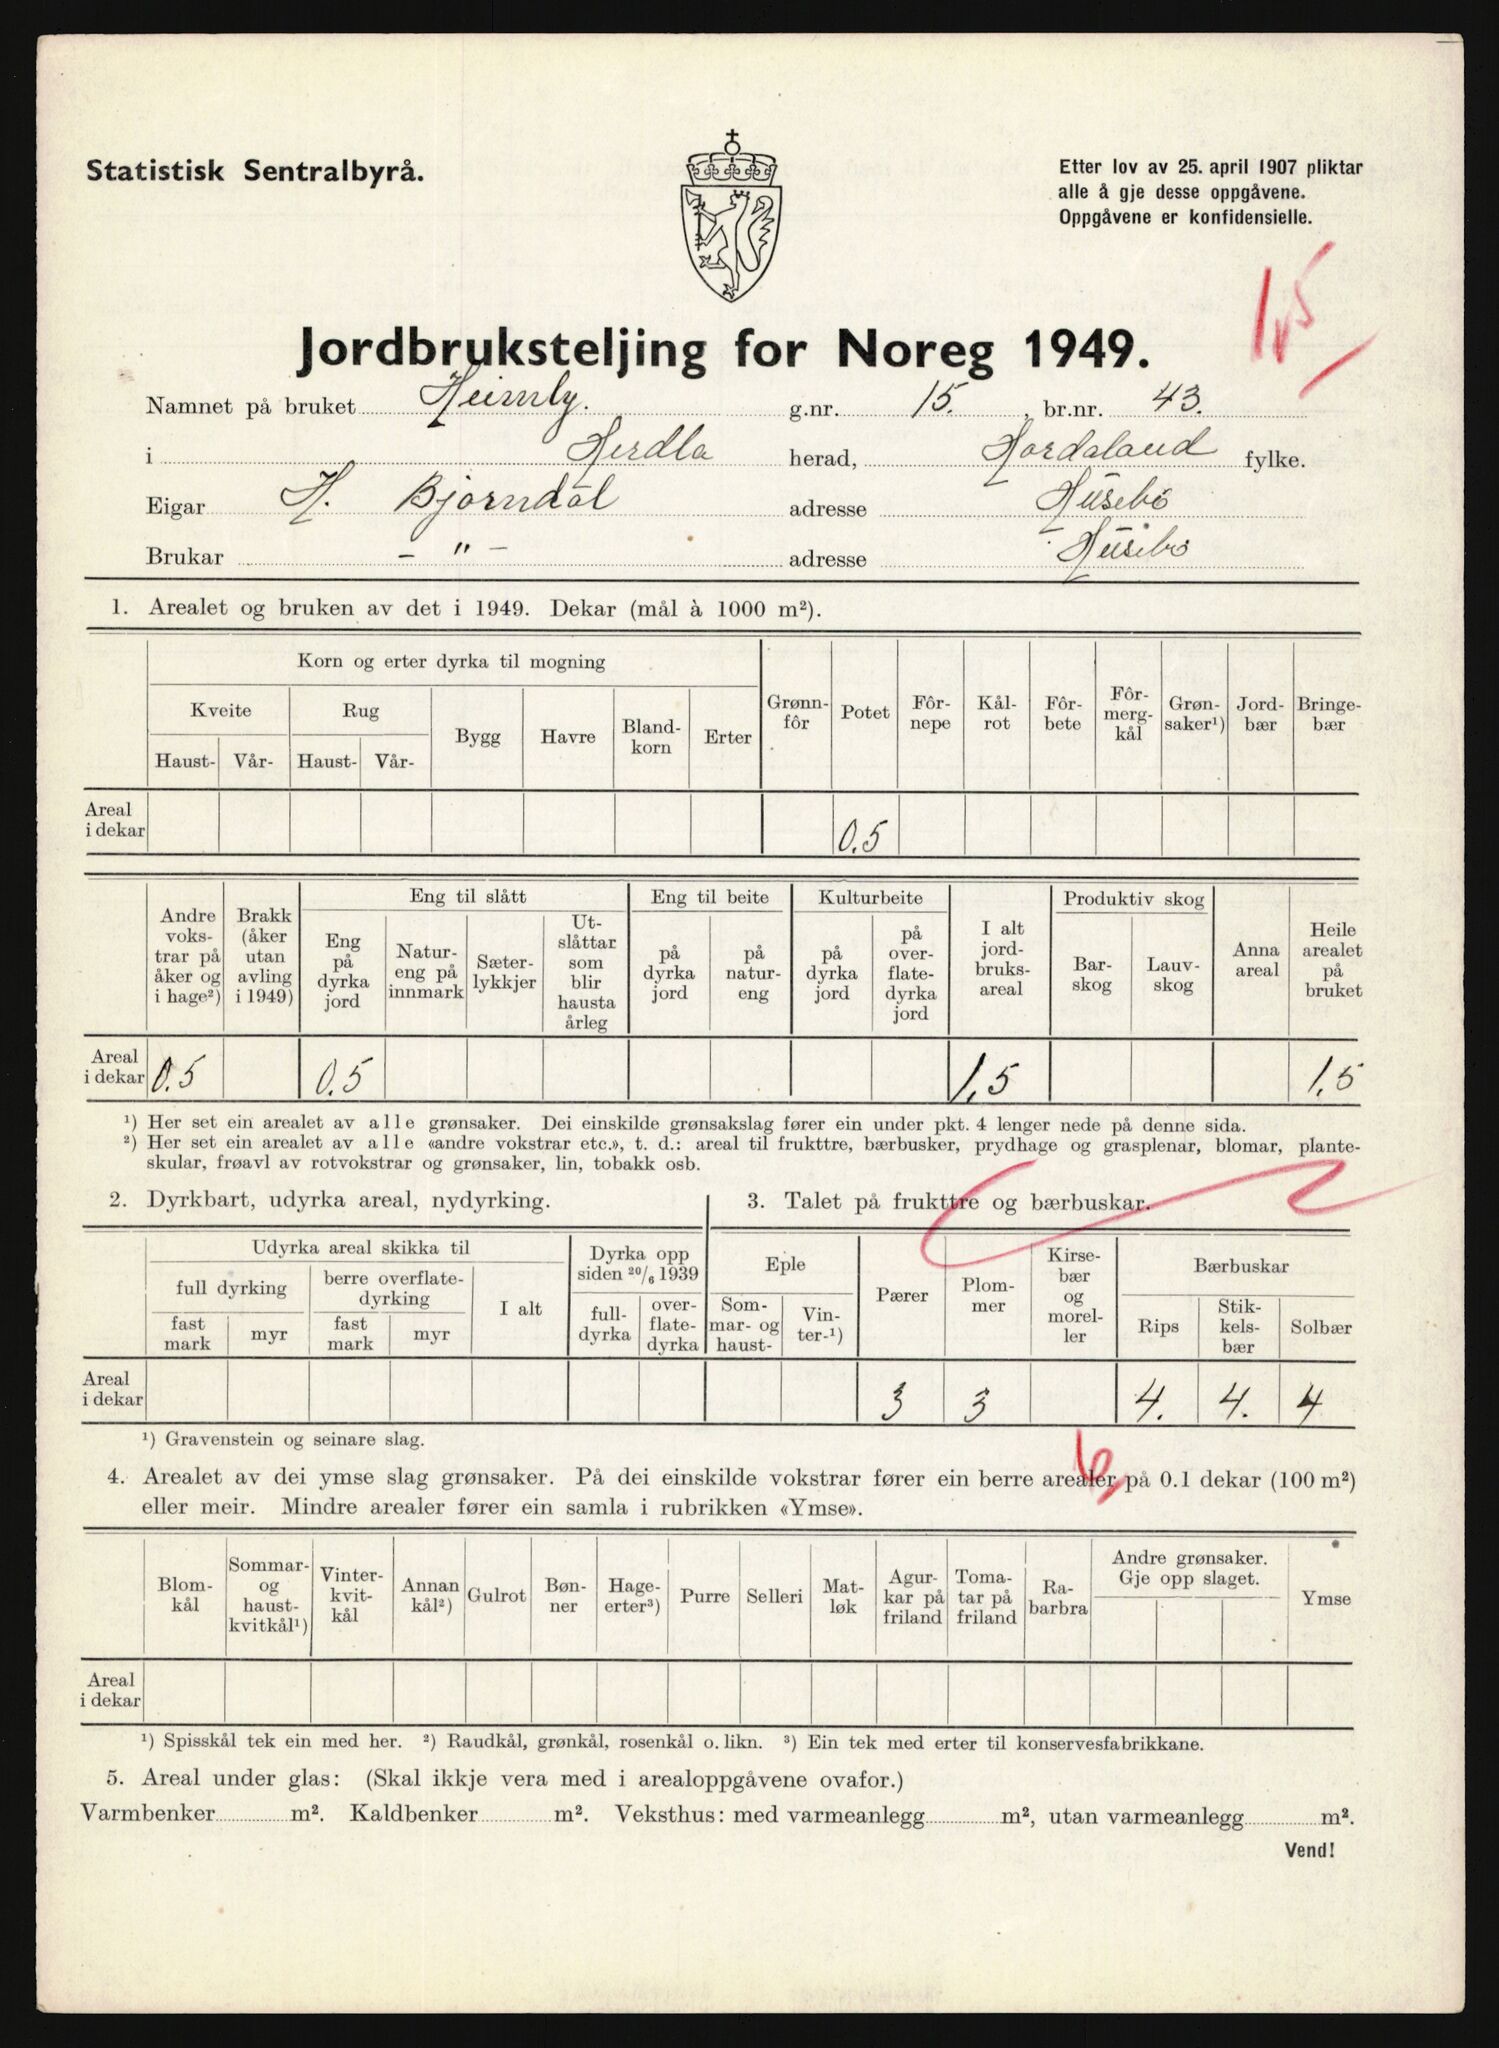 Statistisk Sentralbyrå.
Etter lov av 25. april 1907 pliktar
alle å gje desse oppgåvene.
Oppgåvene er konfidensielle.
1,5
Jordbruksteljing for Noreg 1949.
Namnet på bruket Heimly. g.nr. 15., br.nr. 43.
i Herdla herad, Hordaland fylke.
Eigar H. Bjørndal adresse Husebö
Brukar - " - adresse Husebö
1. Arealet og bruken av det i 1949. Dekar (mål à 1000 m²).
Korn og erter dyrka til mogning
Kveite Rug Bygg Havre Bland-korn Erter Grønn-fôr Potet Fôr-nepe Kål-rot Fôr-bete Fôr-merg-kål Grøn-saker¹) Jord-bær Bringe-bær
Haust- Vår- Haust- Vår-
Areal i dekar 0.5
Eng til slått Eng til beite Kulturbeite Produktiv skog
Andre voks-trar på åker og i hage²) Brakk (åker utan avling i 1949) Eng på dyrka jord Natur-eng på innmark Sæter-lykkjer Ut-slåttar som blir hausta årleg på dyrka jord på natur-eng på dyrka jord på over-flate-dyrka jord I alt jord-bruks-areal Bar-skog Lauv-skog Anna areal Heile arealet på bruket
Areal i dekar 0.5 0.5 1,5 1,5
¹) Her set ein arealet av alle grønsaker. Dei einskilde grønsakslag fører ein under pkt. 4 lenger nede på denne sida.
²) Her set ein arealet av alle «andre vokstrar etc.», t. d.: areal til frukttre, bærbusker, prydhage og grasplenar, blomar, plante-
skular, frøavl av rotvokstrar og grønsaker, lin, tobakk osb.
2. Dyrkbart, udyrka areal, nydyrking.
3. Talet på frukttre og bærbuskar.
Udyrka areal skikka til Dyrka opp siden 20/6 1939 Eple Pærer Plom-mer Kirse-bær og morel-ler Bærbuskar
full dyrking berre overflate-dyrking I alt full-dyrka over-flate-dyrka Som-mar- og haust- Vin-ter-¹) Rips Stik-kels-bær Solbær
fast mark myr fast mark myr
Areal i dekar 3 3 4. 4. 4
¹) Gravenstein og seinare slag.
6
4. Arealet av dei ymse slag grønsaker. På dei einskilde vokstrar fører ein berre arealer på 0.1 dekar (100 m²)
eller meir. Mindre arealer fører ein samla i rubrikken «Ymse».
Blom-kål Sommar- og haust-kvitkål¹) Vinter-kvit-kål Annan kål²) Gulrot Bøn-ner Hage-erter³) Purre Selleri Mat-løk Agur-kar på friland Toma-tar på friland Ra-barbra Andre grønsaker. Gje opp slaget. Ymse
Areal i dekar
¹) Spisskål tek ein med her. ²) Raudkål, grønkål, rosenkål o. likn. ³) Ein tek med erter til konservesfabrikkane.
5. Areal under glas: (Skal ikkje vera med i arealoppgåvene ovafor.)
Varmbenker m². Kaldbenker m². Veksthus: med varmeanlegg m², utan varmeanlegg m².
Vend!